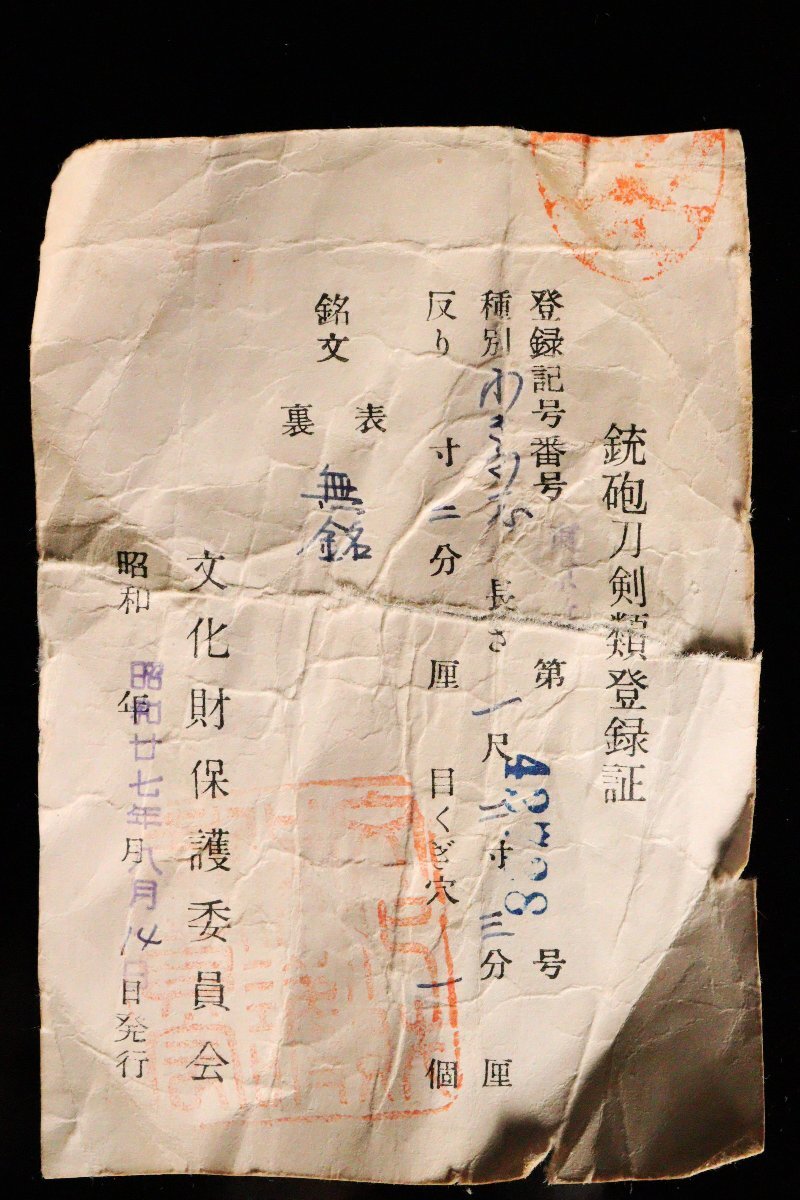 銃砲刀剣類登録証
登録記号番号 第 号
種別 わきざし 長さ 一尺 二寸 三分 厘
反り 寸 二分 厘 目くぎ穴 一個
銘文 表
裏
無銘
文化財保護委員会
昭和 年 月 日発行
昭和廿七年八月14日